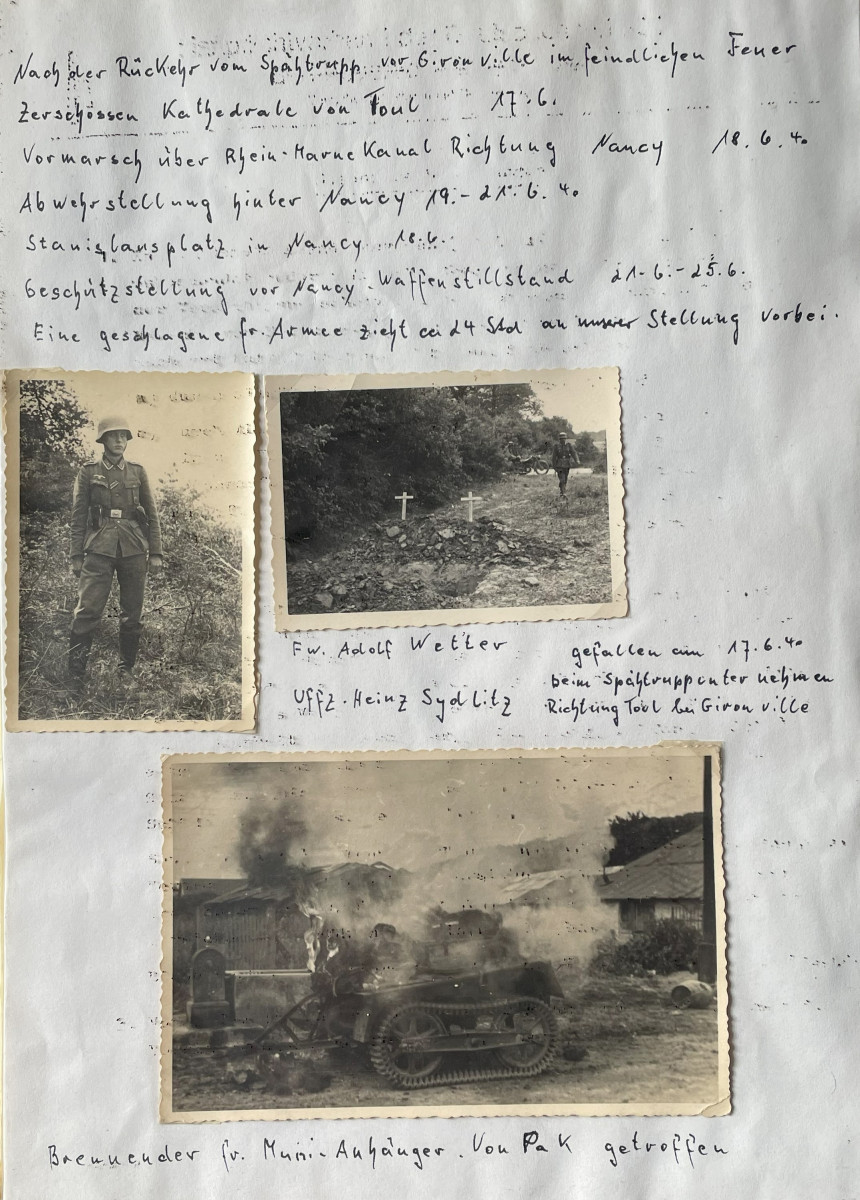 Nach der Rückehr vom Spähtrupp vor Gironville im feindlichen Feuer
Zerschossen Kathedrale von Toul 17.6.
Vormarsch über Rhein-Marne Kanal Richtung Nancy 18.6.40
Abwehrstellung hinter Nancy 19.-21.6.40
Stanislausplatz in Nancy 18.6.
Geschützstellung vor Nancy-Waffenstillstand 21.6.-25.6.
Eine geschlagene fr. Armee zieht ca 24 Std an unserer Stellung vorbei.
Fw. Adolf Wetter gefallen am 17.6.40
beim Spähtruppunternehmen
Uffz. Heinz Sydlitz Richtung Toul bei Gironville
Brennender fr. Muni-Anhänger. Von Pak getroffen